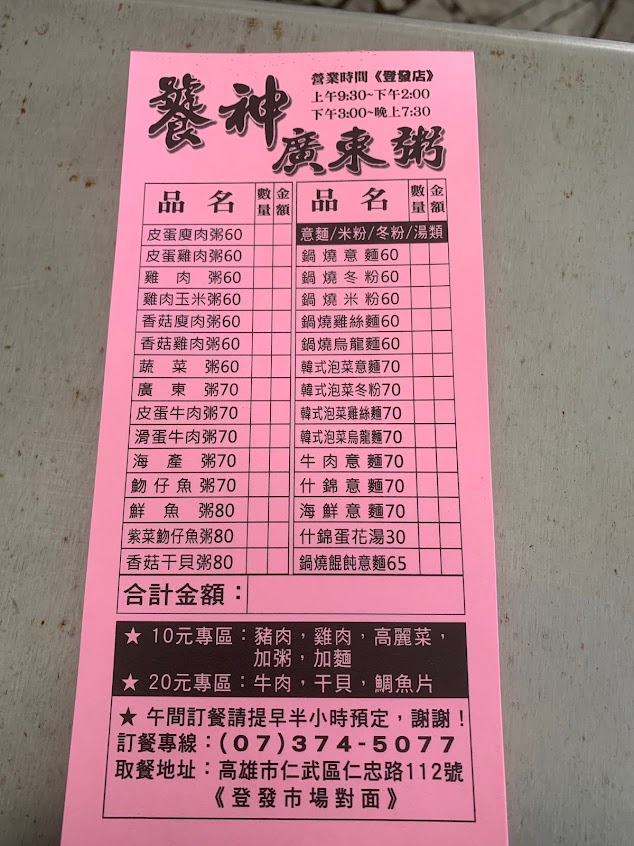 饕神
廣東粥
營業時間《登發店》
上午9:30~下午2:00
下午3:00~晚上7:30
品名 數量 金額
皮蛋廋肉粥60
皮蛋雞肉粥60
雞肉粥60
雞肉玉米粥60
香菇廋肉粥60
香菇雞肉粥60
蔬菜粥60
廣東粥70
皮蛋牛肉粥70
滑蛋牛肉粥70
海產粥70
魩仔魚粥70
鮮魚粥80
紫菜魩仔魚粥80
香菇干貝粥80
品名 數量 金額
意麵/米粉/冬粉/湯類
鍋燒意麵60
鍋燒冬粉60
鍋燒米粉60
鍋燒雞絲麵60
鍋燒烏龍麵60
韓式泡菜意麵70
韓式泡菜冬粉70
韓式泡菜雞絲麵70
韓式泡菜烏龍麵70
牛肉意麵70
什錦意麵70
海鮮意麵70
什錦蛋花湯30
鍋燒餛飩意麵65
合計金額：
★ 10元專區：豬肉，雞肉，高麗菜，
加粥，加麵
★ 20元專區：牛肉，干貝，鯛魚片
★ 午間訂餐請提早半小時預定，謝謝！
訂餐專線：(07)374-5077
取餐地址：高雄市仁武區仁忠路112號
《登發市場對面》